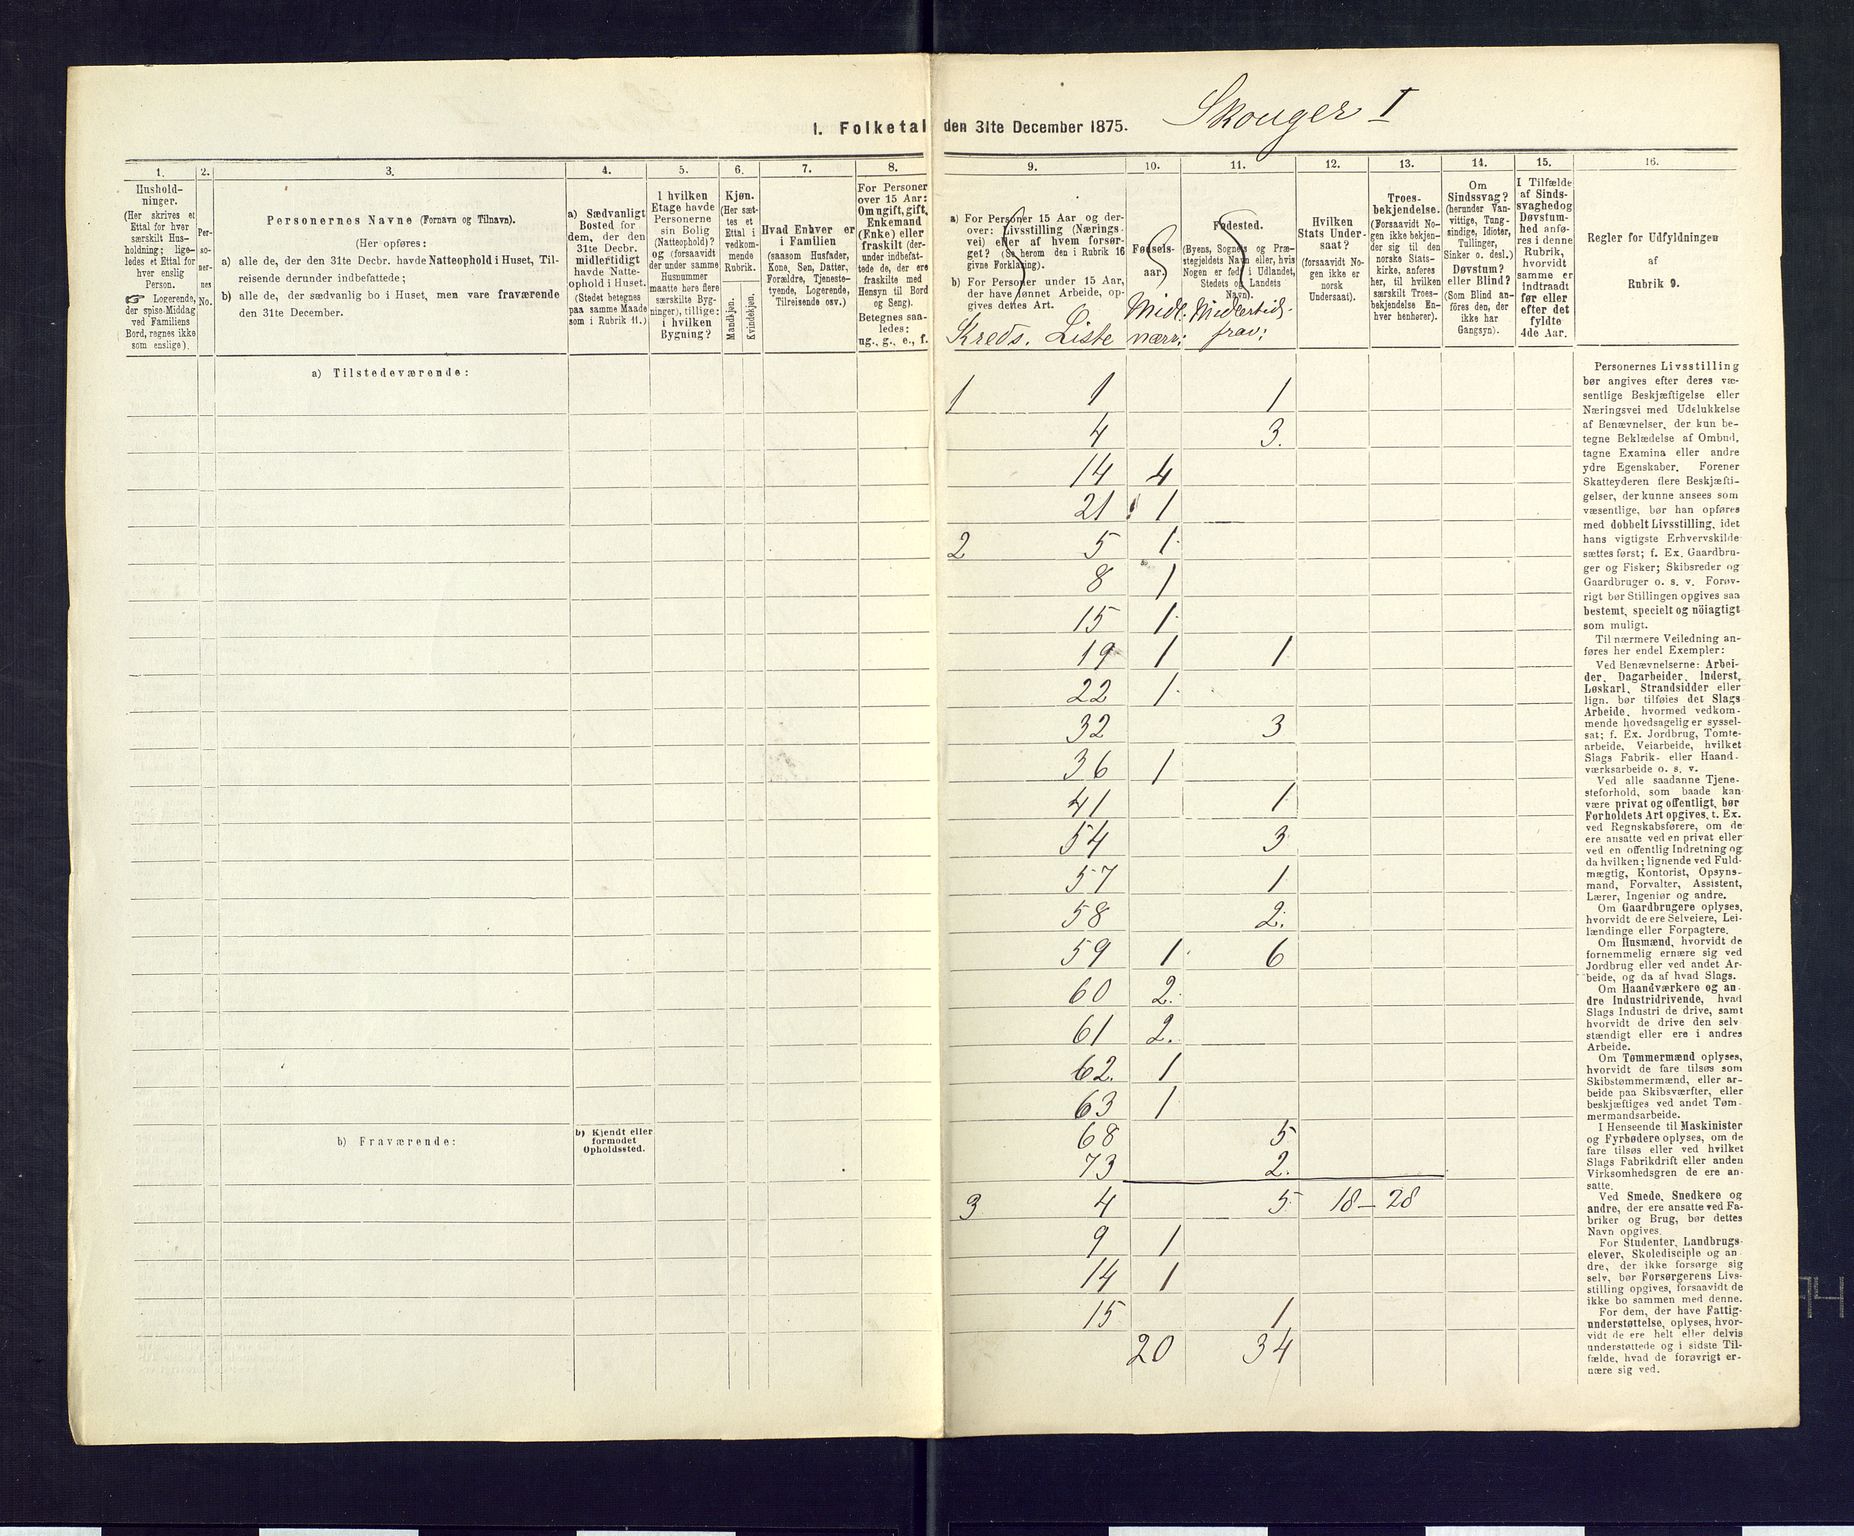 Skouger I
1. Folketal den 31te December 1875.
1.
2.
3.
4.
5.
6.
7.
8.
9.
10.
11.
12.
13.
14.
15.
16.
Hushold-
ninger.
(Her skrives et
Ettal for hver
særskilt Hus-
holdning; lige-
ledes et Ettal for
hver enslig
Person.
☞ Logerende,
der spise Middag
ved Familiens
Bord, regnes ikke
som enslige).
Per-
so-
ner-
nes
No.
Personernes Navne (Fornavn og Tilnavn).
(Her opføres:
a) alle de, der den 31te Decbr. havde Natteophold i Huset, Til-
reisende derunder indbefattede;
b) alle de, der sædvanlig bo i Huset, men vare fraværende
den 31te December.
a) Sædvanligt
Bosted for
dem, der den
31te Decbr.
midlertidigt
havde Natte-
ophold i Huset.
(Stedet betegnes
paa samme Maade
som i Rubrik 11.)
I hvilken
Etage havde
Personerne
sin Bolig
(Natteophold)?
og (forsaavidt
der under samme
Husnummer
maatte høre flere
særskilte Byg-
ninger), tillige:
i hvilken
Bygning?
Kjøn.
(Her sæt-
tes et
Ettal i
vedkom-
mende
Rubrik.
Mandkjøn.
Kvindekjøn.
Hvad Enhver er
i Familien
(saasom Husfader,
Kone, Søn, Datter,
Forældre, Tjeneste-
tyende, Logerende,
Tilreisende osv.)
For Personer
over 15 Aar:
Om ugift, gift,
Enkemand
(Enke) eller
fraskilt (der-
under indbefat-
tede de, der ere
fraskilte med
Hensyn til Bord
og Seng).
Betegnes saa-
ledes:
ug., g., e., f.
a) For Personer 15 Aar og der-
over: Livsstilling (Nærings-
vei) eller af hvem forsør-
get? (Se herom den i Rubrik 16
givne Forklaring).
b) For Personer under 15 Aar,
der have lønnet Arbeide, op-
gives dettes Art.
Kreds. Liste
Fødsels-
aar.
Midl.
nærv:
Fødested.
(Byens, Sognets og Præ-
stegjeldets Navn eller, hvis
Nogen er født i Udlandet,
Stedets og Landets
Navn).
Midlertid.
frav:
Hvilken
Stats Under-
saat?
(forsaavidt No-
gen ikke er
norsk
Undersaat).
Troes-
bekjendelse.
(Forsaavidt No-
gen ikke bekjen-
der sig til den
norske Stats-
kirke, anføres
her, til hvilken
særskilt Troes-
bekjendelse En-
hver henhører).
Om
Sindssvag?
(herunder Van-
vittige, Tung-
sindige, Idioter,
Tullinger,
Sinker o. desl.)
Døvstum?
eller Blind?
(Som Blind an-
føres den, der
ikke har
Gangsyn).
I Tilfælde
af Sinds-
svaghed og
Døvstum-
hed anfø-
res i denne
Rubrik,
hvorvidt
samme er
indtraadt
før eller
efter det
fyldte
4de Aar.
Regler for Udfyldningen
af
Rubrik 9.
a) Tilstedeværende:
b) Fraværende:
b) Kjendt eller
formodet
Opholdssted.
1 1 1
4 3.
14 4
21 1
2 5 1
8 1
15 1
19 1 1
22 1
32 3
36 1
41 1
54 3
57 1
58 2.
59 1 6
60 2.
61 2.
62. 1
63 1
68 5
73 2.
3 4 5 18 – 28
9 1
14 1
15 1
20 34
Personernes Livsstilling
bør angives efter deres væ-
sentlige Beskjæftigelse eller
Næringsvei med Udelukkelse
af Benævnelser, der kun be-
tegne Beklædelse af Ombud,
tagne Examina eller andre
ydre Egenskaber. Forener
Skatteyderen flere Beskjæfti-
gelser, der kunne ansees som
væsentlige, bør han opføres
med dobbelt Livsstilling, idet
hans vigtigste Erhvervskilde
sættes først; f. Ex. Gaardbru-
ger og Fisker; Skibsreder og
Gaardbruger o. s. v. Forøv-
rigt bør Stillingen opgives saa
bestemt, specielt og nöiagtigt
som muligt.
Til nærmere Veiledning an-
føres her endel Exempler:
Ved Benævnelserne: Arbei-
der, Dagarbeider, Inderst,
Løskarl, Strandsidder eller
lign. bør tilføies det Slags
Arbeide, hvormed vedkom-
mende hovedsagelig er syssel-
sat; f. Ex. Jordbrug, Tomte-
arbeide, Veiarbeide, hvilket
Slags Fabrik- eller Haand-
værksarbeide o. s. v.
Ved alle saadanne Tjene-
steforhold, som baade kan
være privat og offentligt, bør
Forholdets Art opgives, t. Ex.
ved Regnskabsførere, om de
ere ansatte ved en privat eller
ved en offentlig Indretning og
da hvilken; lignende ved Fuld-
mægtig, Kontorist, Opsyns-
mand, Forvalter, Assistent,
Lærer, Ingeniør og andre.
Om Gaardbrugere oplyses,
hvorvidt de ere Selveiere, Lei-
lændinge eller Forpagtere.
Om Husmænd, hvorvidt de
fornemmelig ernære sig ved
Jordbrug eller ved andet Ar-
beide, og da af hvad Slags.
Om Haandværkere og an-
dre Industridrivende, hvad
Slags Industri de drive, samt
hvorvidt de drive den selv
stændigt eller ere i andres
Arbeide.
Om Tømmermænd oplyses,
hvorvidt de fare tilsøs som
Skibstømmermænd, eller ar-
beide paa Skibsværfter, eller
beskjæftiges ved andet Tøm-
mermandsarbeide.
I Henseende til Maskinister
og Fyrbødere oplyses, om de
fare tilsøs eller ved hvilket
Slags Fabrikdrift eller anden
Virksomhedsgren de ere an-
satte.
Ved Smede, Snedkere og
andre, der ere ansatte ved Fa-
briker og Brug, bør dettes
Navn opgives.
For Studenter, Landbrugs-
elever, Skoledisciple og an
dre, der ikke forsørge sig
selv, bør Forsørgerens Livs-
stilling opgives, forsaavidt de
ikke bo sammen med denne.
For dem, der have Fattig-
understøttelse, oplyses, hvor-
vidt de ere helt eller delvis
understøttede og i sidste Til-
fælde, hvad de forøvrigt er-
nære sig ved.